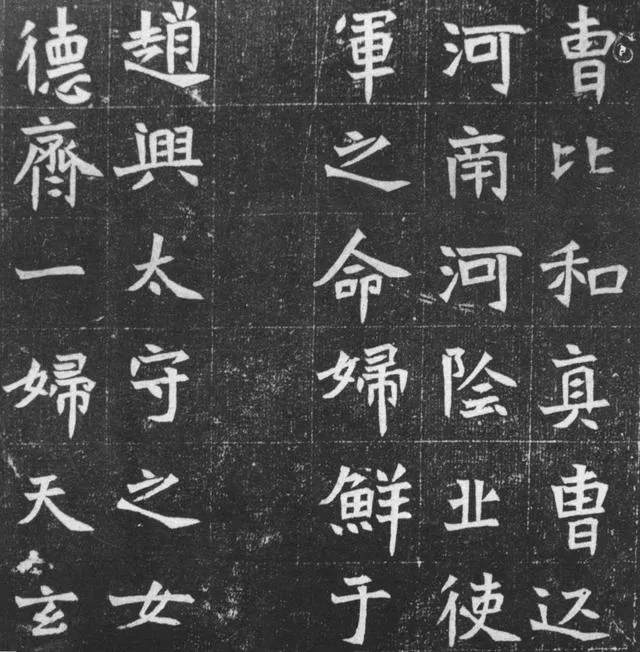 曹比和真曹
河南河陰北使
軍之命婦鮮于
趙興太守之女
德齊一婦天玄